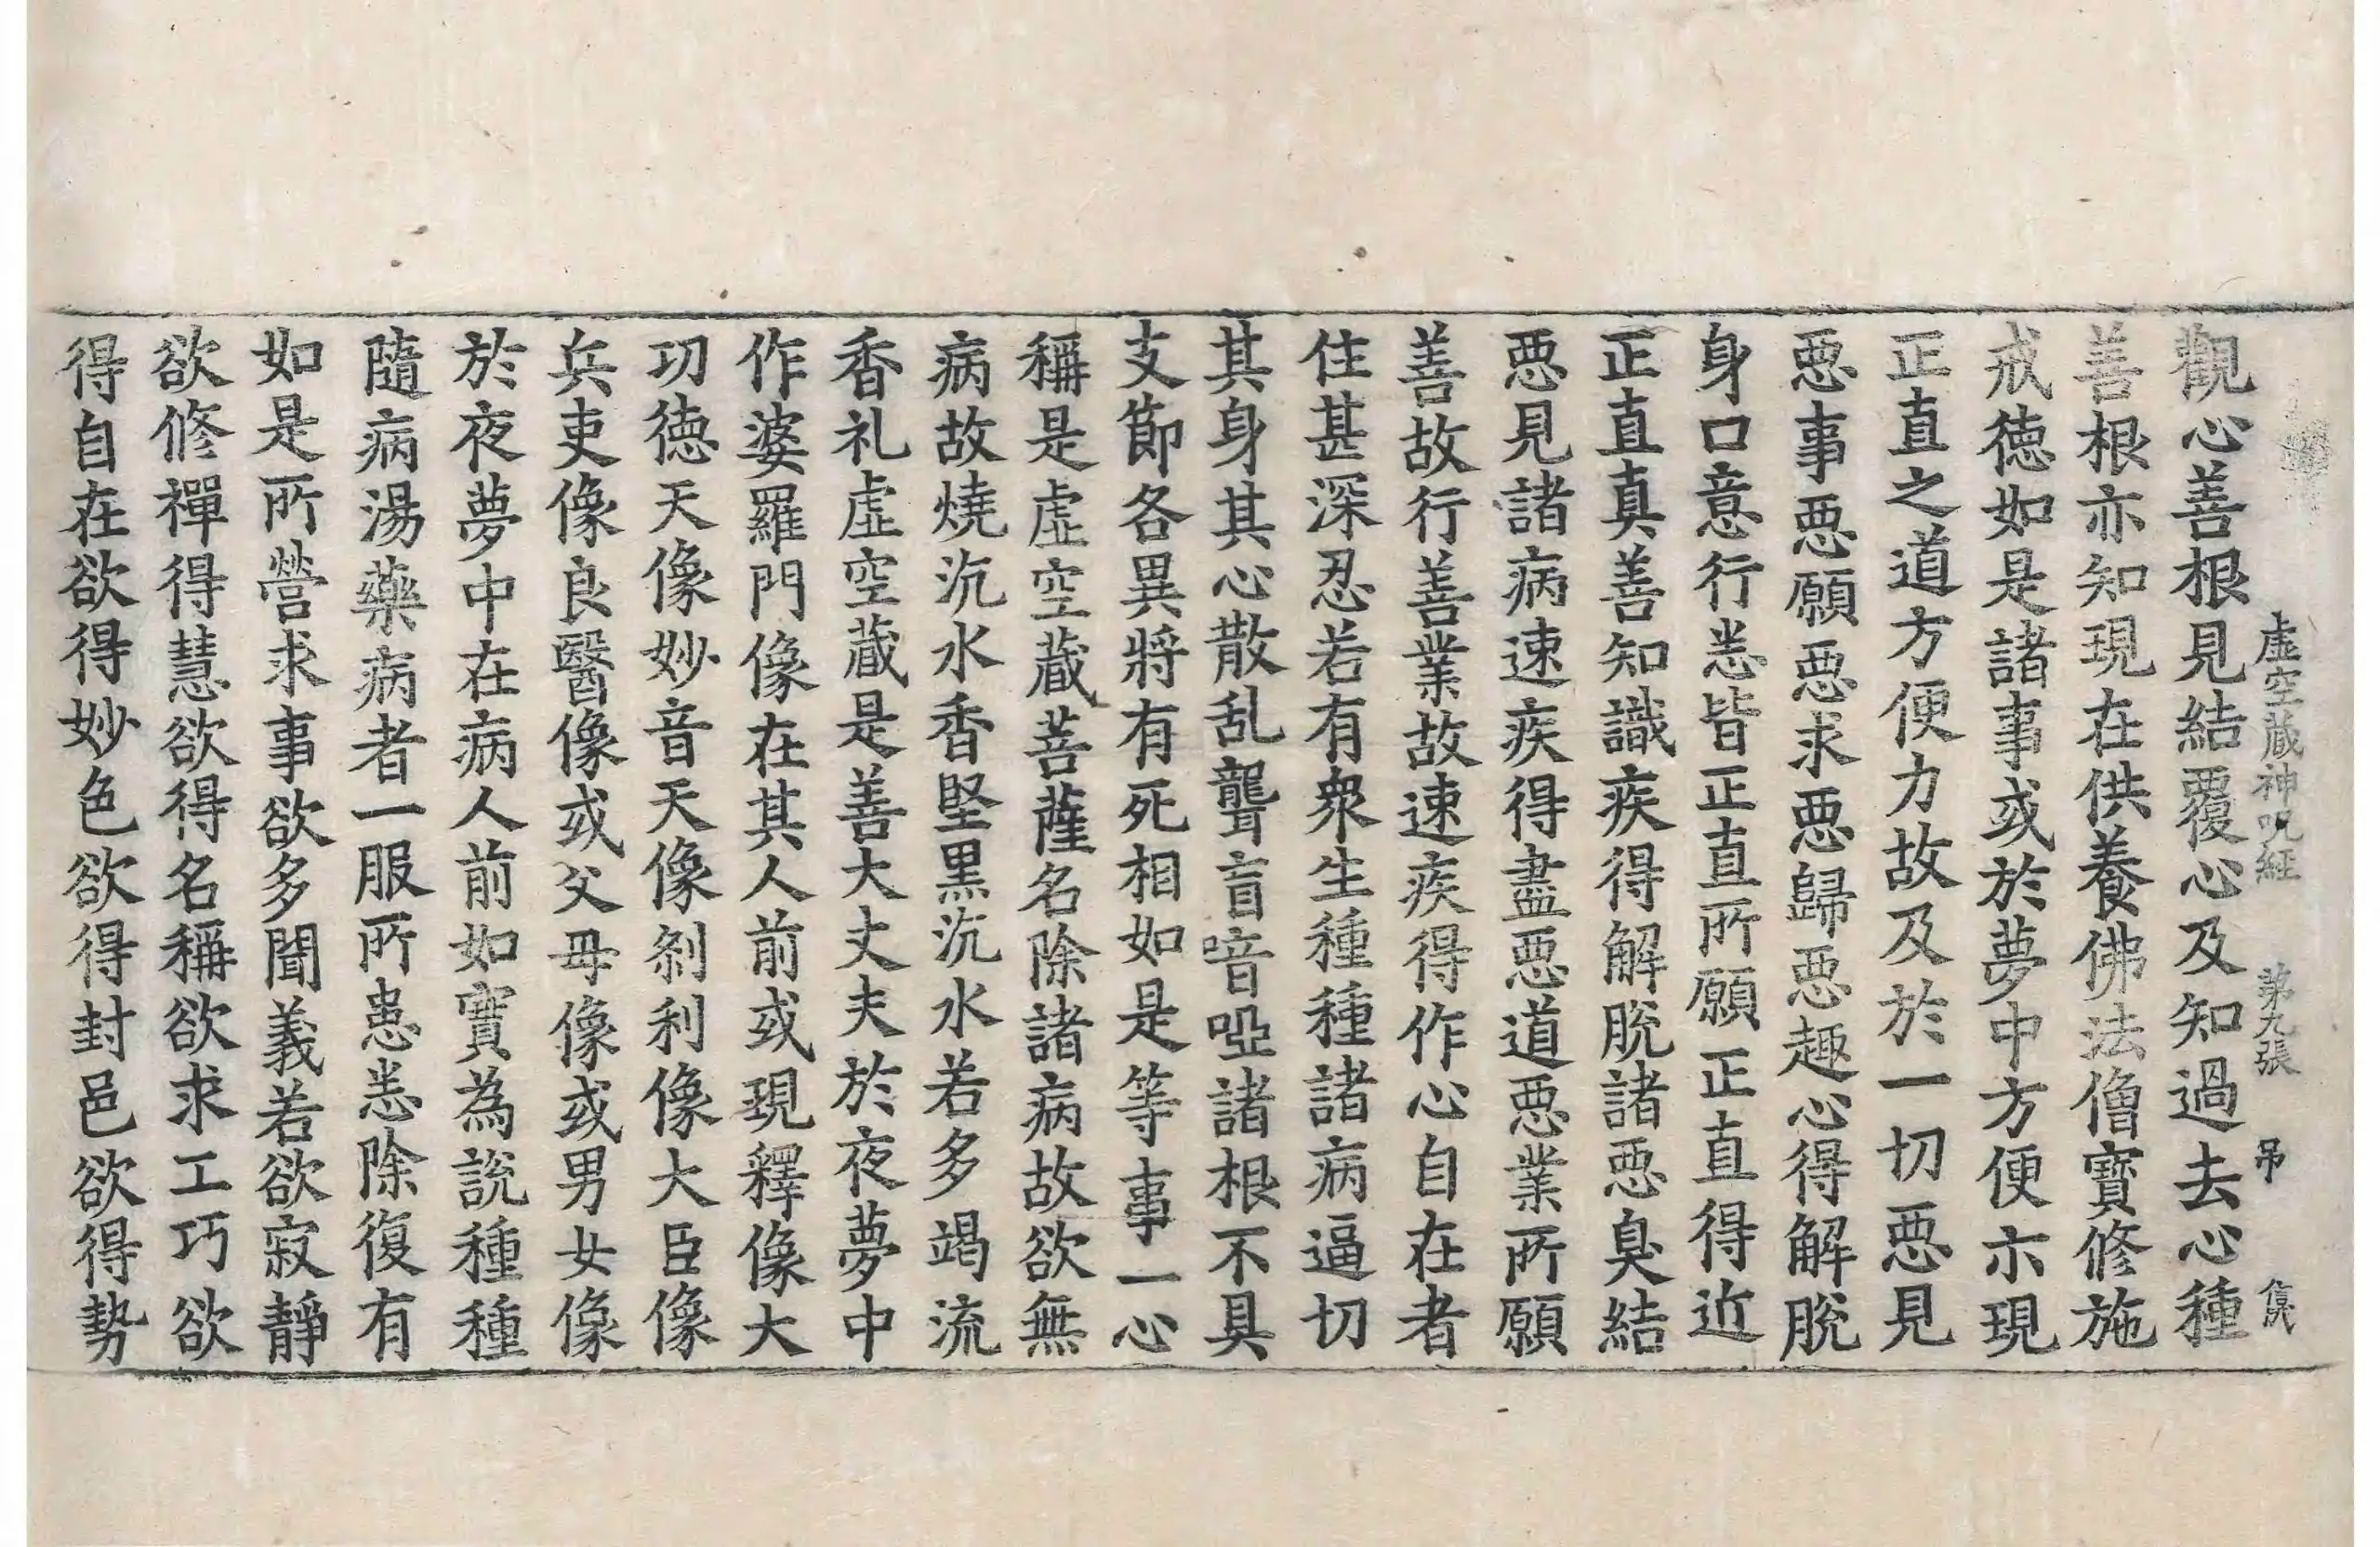 虛空蔵神呪経 第九張 弔
觀心善根見結覆心及知過去心種
善根亦知現在供養佛法僧寶修施
戒德如是諸事或於夢中方便示現
正直之道方便力故及於一切惡見
惡事惡願惡求惡歸惡趣心得解脫
身口意行悉皆正直所願正直得近
正直真善知識疾得解脫諸惡臭結
惡見諸病速疾得盡惡道惡業所願
善故行善業故速疾得作心自在者
住甚深忍若有衆生種種諸病逼切
其身其心散乱聾盲喑啞諸根不具
支節各異將有死相如是等事一心
稱是虛空蔵菩薩名除諸病故欲無
病故燒沉水香堅黑沉水若多竭流
香礼虛空蔵是善大丈夫於夜夢中
作婆羅門像在其人前或現釋像大
功德天像妙音天像剎利像大臣像
兵吏像良醫像或父母像或男女像
於夜夢中在病人前如實為說種種
隨病湯藥病者一服所患悉除復有
如是所營求事欲多聞義若欲寂靜
欲修禪得慧欲得名稱欲求工巧欲
得自在欲得妙色欲得封邑欲得勢